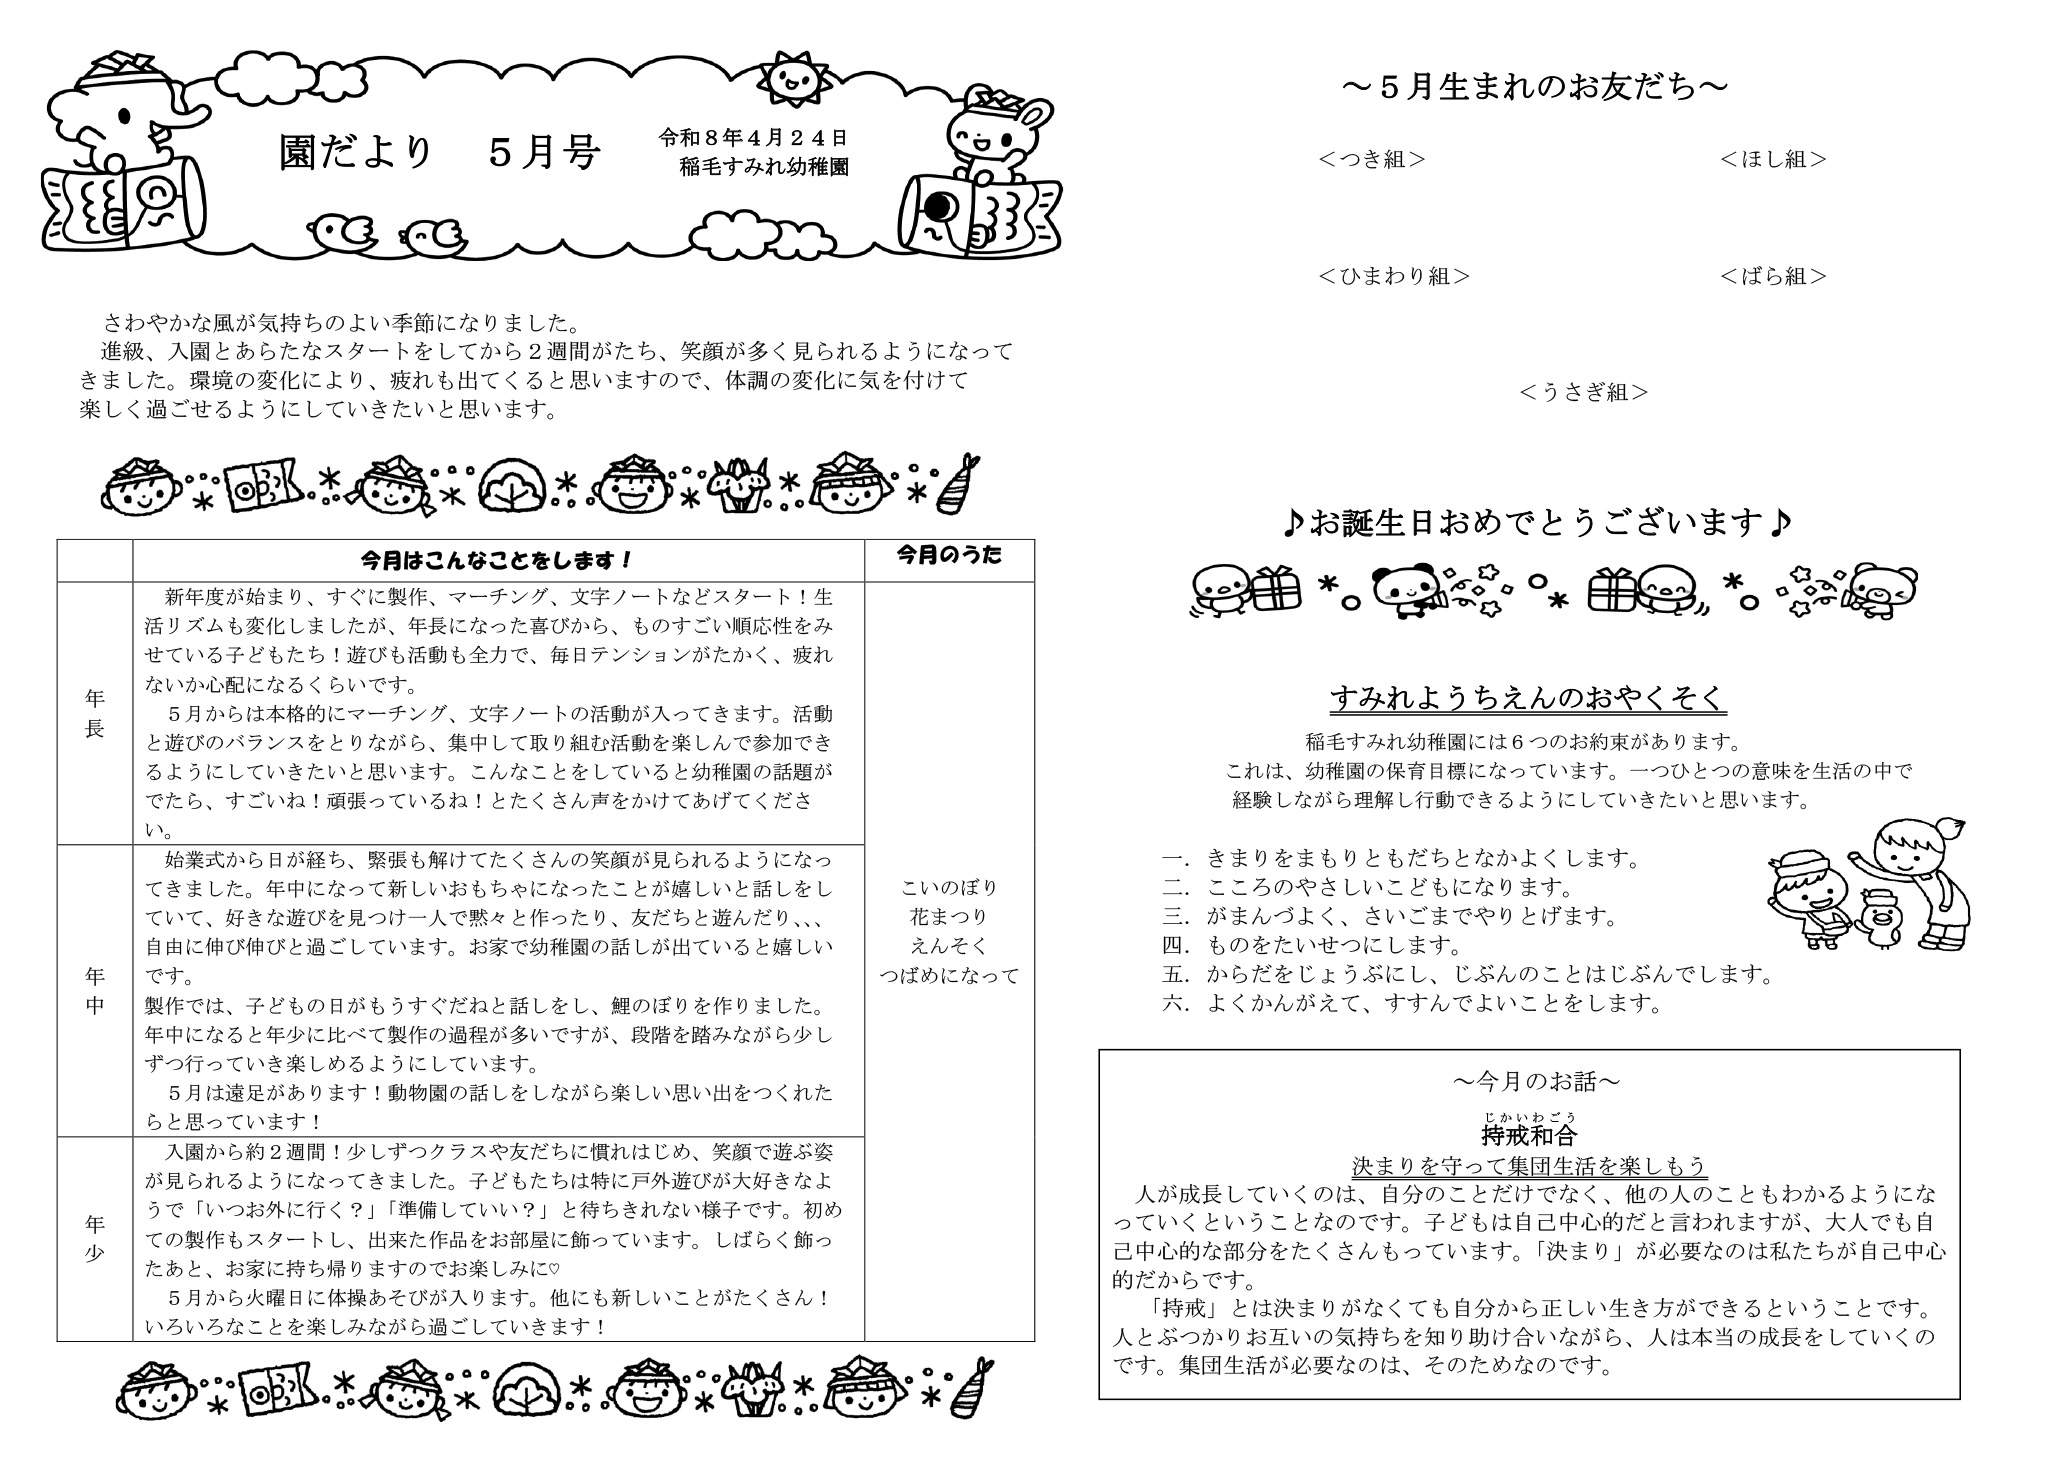 園だより　５月号
令和８年４月２４日
稲毛すみれ幼稚園
さわやかな風が気持ちのよい季節になりました。
進級、入園とあらたなスタートをしてから２週間がたち、笑顔が多く見られるようになって
きました。環境の変化により、疲れも出てくると思いますので、体調の変化に気を付けて
楽しく過ごせるようにしていきたいと思います。
今月はこんなことをします！
今月のうた
年長
新年度が始まり、すぐに製作、マーチング、文字ノートなどスタート！生
活リズムも変化しましたが、年長になった喜びから、ものすごい順応性をみ
せている子どもたち！遊びも活動も全力で、毎日テンションがたかく、疲れ
ないか心配になるくらいです。
５月からは本格的にマーチング、文字ノートの活動が入ってきます。活動
と遊びのバランスをとりながら、集中して取り組む活動を楽しんで参加でき
るようにしていきたいと思います。こんなことをしていると幼稚園の話題が
でたら、すごいね！頑張っているね！とたくさん声をかけてあげてくださ
い。
年中
始業式から日が経ち、緊張も解けてたくさんの笑顔が見られるようになっ
てきました。年中になって新しいおもちゃになったことが嬉しいと話しをし
ていて、好きな遊びを見つけ一人で黙々と作ったり、友だちと遊んだり、、、
自由に伸び伸びと過ごしています。お家で幼稚園の話しが出ていると嬉しい
です。
製作では、子どもの日がもうすぐだねと話しをし、鯉のぼりを作りました。
年中になると年少に比べて製作の過程が多いですが、段階を踏みながら少し
ずつ行っていき楽しめるようにしています。
５月は遠足があります！動物園の話しをしながら楽しい思い出をつくれた
らと思っています！
年少
入園から約２週間！少しずつクラスや友だちに慣れはじめ、笑顔で遊ぶ姿
が見られるようになってきました。子どもたちは特に戸外遊びが大好きなよ
うで「いつお外に行く？」「準備していい？」と待ちきれない様子です。初め
ての製作もスタートし、出来た作品をお部屋に飾っています。しばらく飾っ
たあと、お家に持ち帰りますのでお楽しみに♡
５月から火曜日に体操あそびが入ります。他にも新しいことがたくさん！
いろいろなことを楽しみながら過ごしていきます！
こいのぼり
花まつり
えんそく
つばめになって
～５月生まれのお友だち～
＜つき組＞
＜ほし組＞
＜ひまわり組＞
＜ばら組＞
＜うさぎ組＞
♪お誕生日おめでとうございます♪
すみれようちえんのおやくそく
稲毛すみれ幼稚園には６つのお約束があります。
これは、幼稚園の保育目標になっています。一つひとつの意味を生活の中で
経験しながら理解し行動できるようにしていきたいと思います。
一．きまりをまもりともだちとなかよくします。
二．こころのやさしいこどもになります。
三．がまんづよく、さいごまでやりとげます。
四．ものをたいせつにします。
五．からだをじょうぶにし、じぶんのことはじぶんでします。
六．よくかんがえて、すすんでよいことをします。
～今月のお話～
じかいわごう
持戒和合
決まりを守って集団生活を楽しもう
人が成長していくのは、自分のことだけでなく、他の人のこともわかるようにな
っていくということなのです。子どもは自己中心的だと言われますが、大人でも自
己中心的な部分をたくさんもっています。「決まり」が必要なのは私たちが自己中心
的だからです。
「持戒」とは決まりがなくても自分から正しい生き方ができるということです。
人とぶつかりお互いの気持ちを知り助け合いながら、人は本当の成長をしていくの
です。集団生活が必要なのは、そのためなのです。